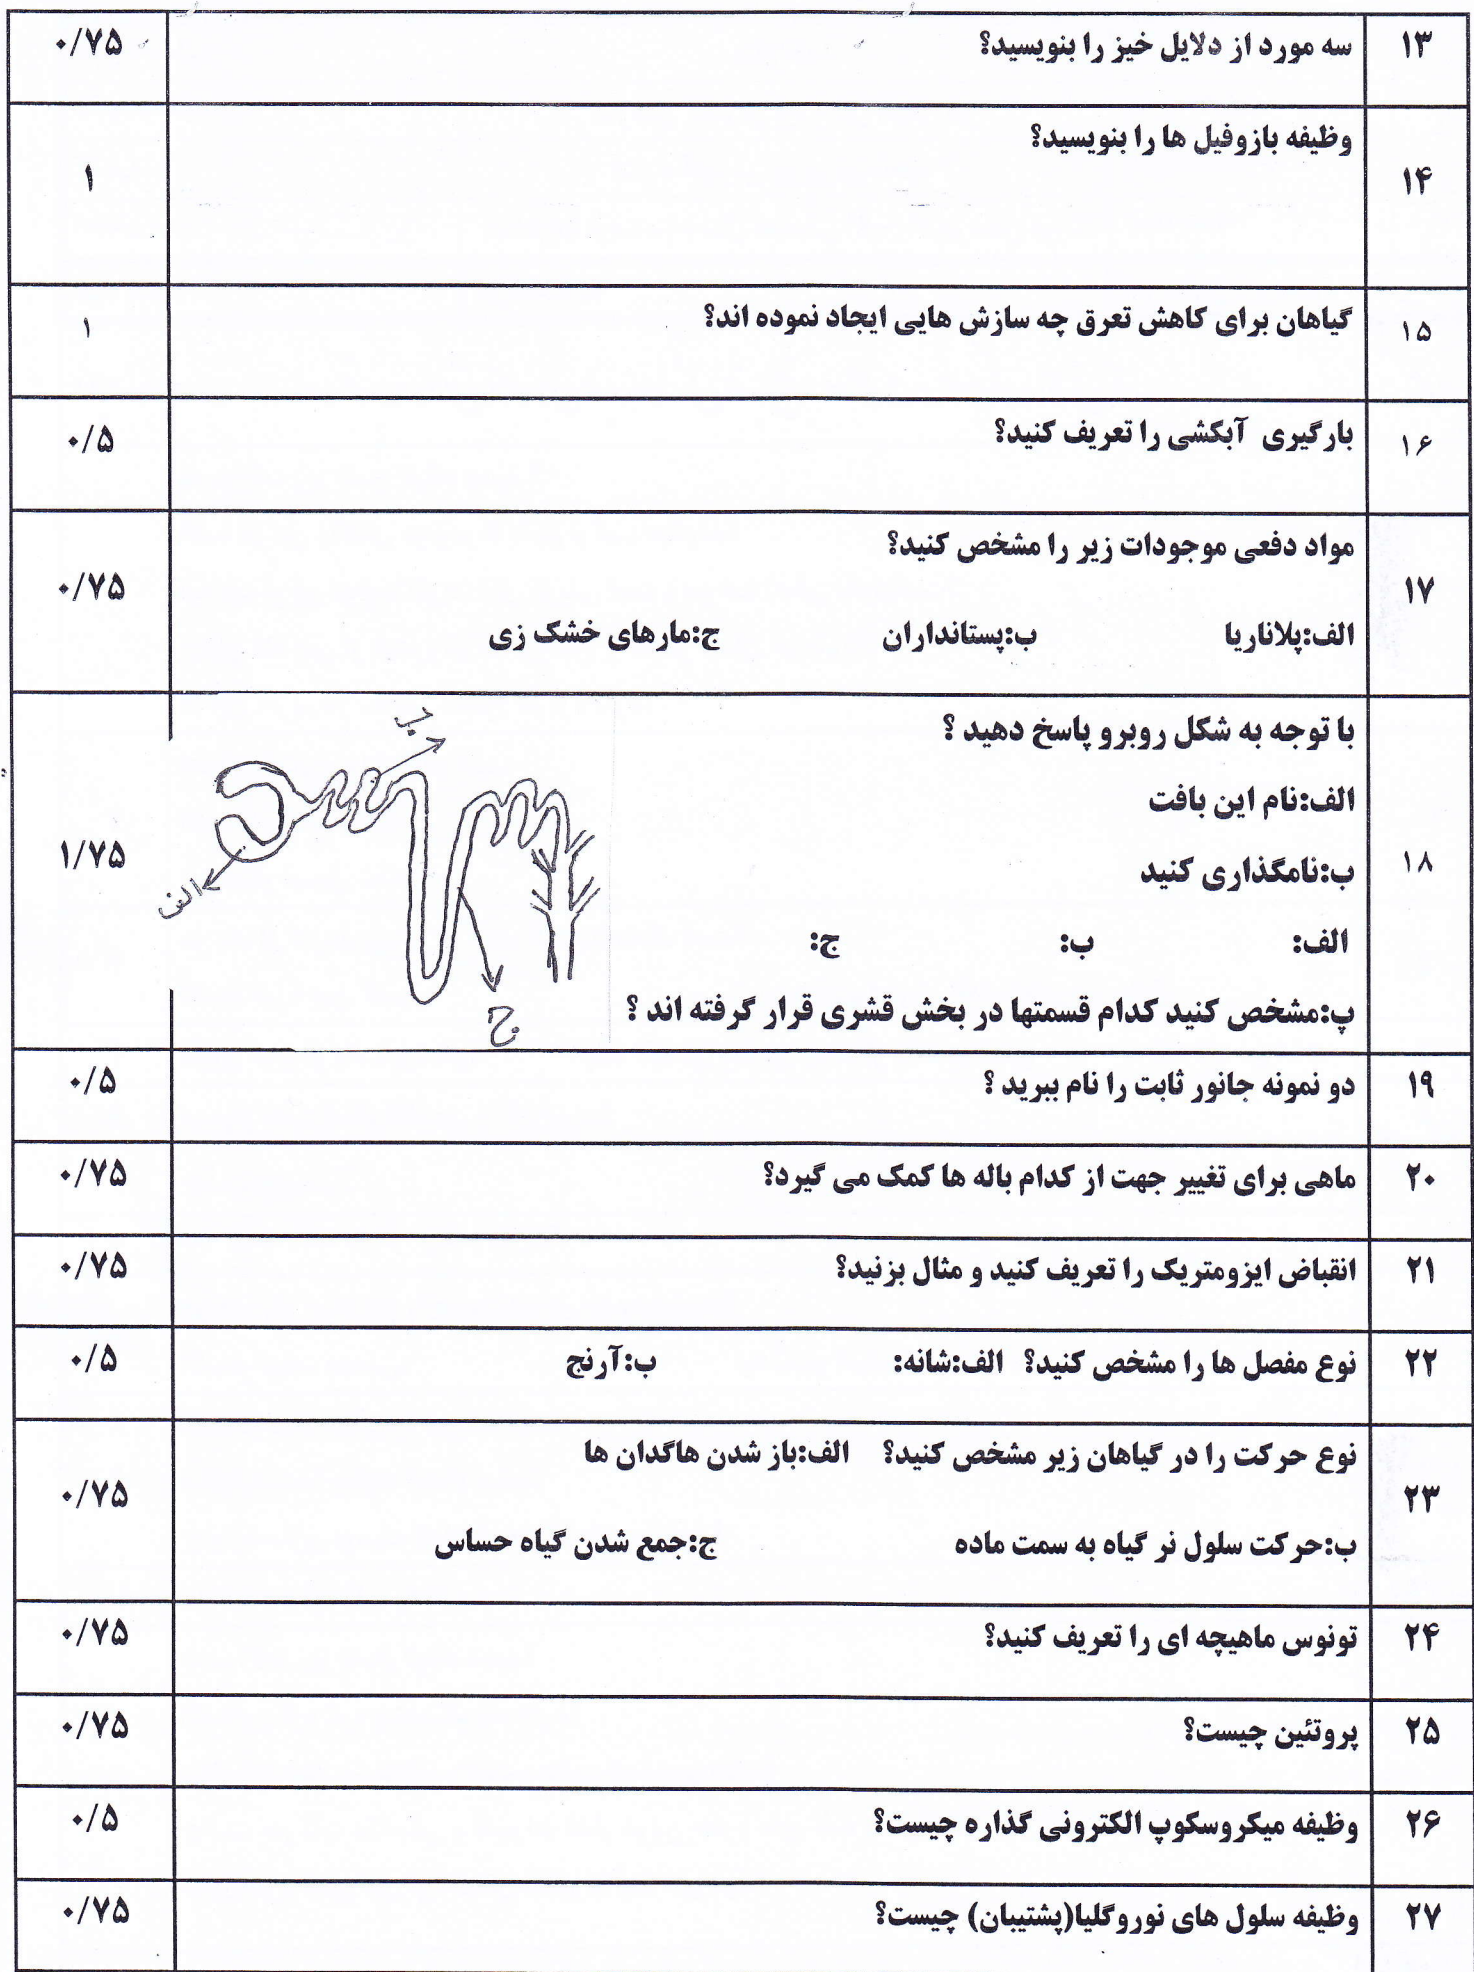 ۱۳ سه مورد از دلایل خیز را بنویسید؟ ۰/۷۵
۱۴ وظیفه بازوفیل ها را بنویسید؟ ۱
۱۵ گیاهان برای کاهش تعرق چه سازش هایی ایجاد نموده اند؟ ۱
۱۶ بارگیری آبکشی را تعریف کنید؟ ۰/۵
۱۷ مواد دفعی موجودات زیر را مشخص کنید؟ ۰/۷۵
الف:پلاناریا ب:پستانداران ج:مارهای خشک زی
۱۸ با توجه به شکل روبرو پاسخ دهید ؟ ۱/۷۵
الف:نام این بافت
ب:نامگذاری کنید
الف: ب: ج:
پ:مشخص کنید کدام قسمتها در بخش قشری قرار گرفته اند ؟
ب
الف
ج
۱۹ دو نمونه جانور ثابت را نام ببرید ؟ ۰/۵
۲۰ ماهی برای تغییر جهت از کدام باله ها کمک می گیرد؟ ۰/۷۵
۲۱ انقباض ایزومتریک را تعریف کنید و مثال بزنید؟ ۰/۷۵
۲۲ نوع مفصل ها را مشخص کنید؟ الف:شانه: ب:آرنج ۰/۵
۲۳ نوع حرکت را در گیاهان زیر مشخص کنید؟ الف:باز شدن هاگدان ها ۰/۷۵
ب:حرکت سلول نر گیاه به سمت ماده ج:جمع شدن گیاه حساس
۲۴ تونوس ماهیچه ای را تعریف کنید؟ ۰/۷۵
۲۵ پروتئین چیست؟ ۰/۷۵
۲۶ وظیفه میکروسکوپ الکترونی گذاره چیست؟ ۰/۵
۲۷ وظیفه سلول های نوروگلیا(پشتیبان) چیست؟ ۰/۷۵